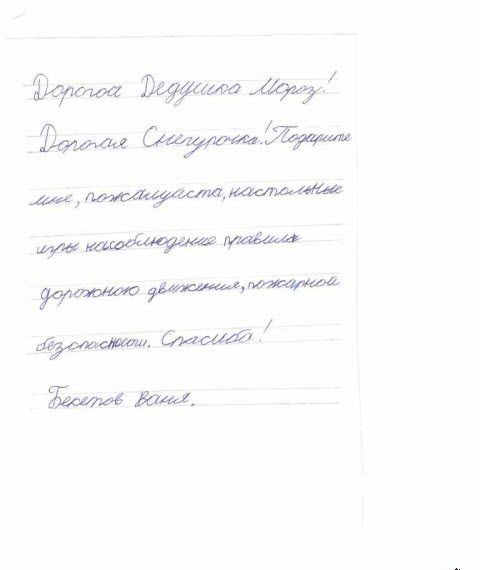 Дорогоа Дедушка Мороз!
Дорогая Снегурочка! Подарите
мне, пожалуиста, настольные
игры насоблюдение правила
дорожного движения, пожарной
безопасности. Спасиба!
Бекетов Ваня.